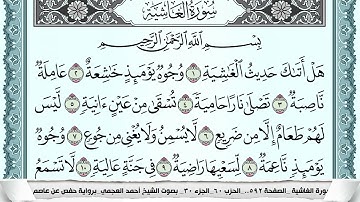 سُورَةُ الْغَاشِيَةِ
بِسْمِ اللَّهِ الرَّحْمَٰنِ الرَّحِيمِ
هَلْ أَتَىٰكَ حَدِيثُ الْغَٰشِيَةِ ١ وُجُوهٌ يَوْمَئِذٍ خَٰشِعَةٌ ٢ عَامِلَةٌ
نَّاصِبَةٌ ٣ تَصْلَىٰ نَارًا حَامِيَةً ٤ تُسْقَىٰ مِنْ عَيْنٍ ءَانِيَةٍ ٥ لَّيْسَ
لَهُمْ طَعَامٌ إِلَّا مِن ضَرِيعٍ ٦ لَّا يُسْمِنُ وَلَا يُغْنِي مِن جُوعٍ ٧ وُجُوهٌ
يَوْمَئِذٍ نَّاعِمَةٌ ٨ لِّسَعْيِهَا رَاضِيَةٌ ٩ فِي جَنَّةٍ عَالِيَةٍ ١٠ لَّا تَسْمَعُ
ورة الغاشية .. الصفحة ٥٩٢.. الحزب ٦٠ الجزء ٣٠ .. بصوت الشيخ أحمد العجمي برواية حفص عن عاصم